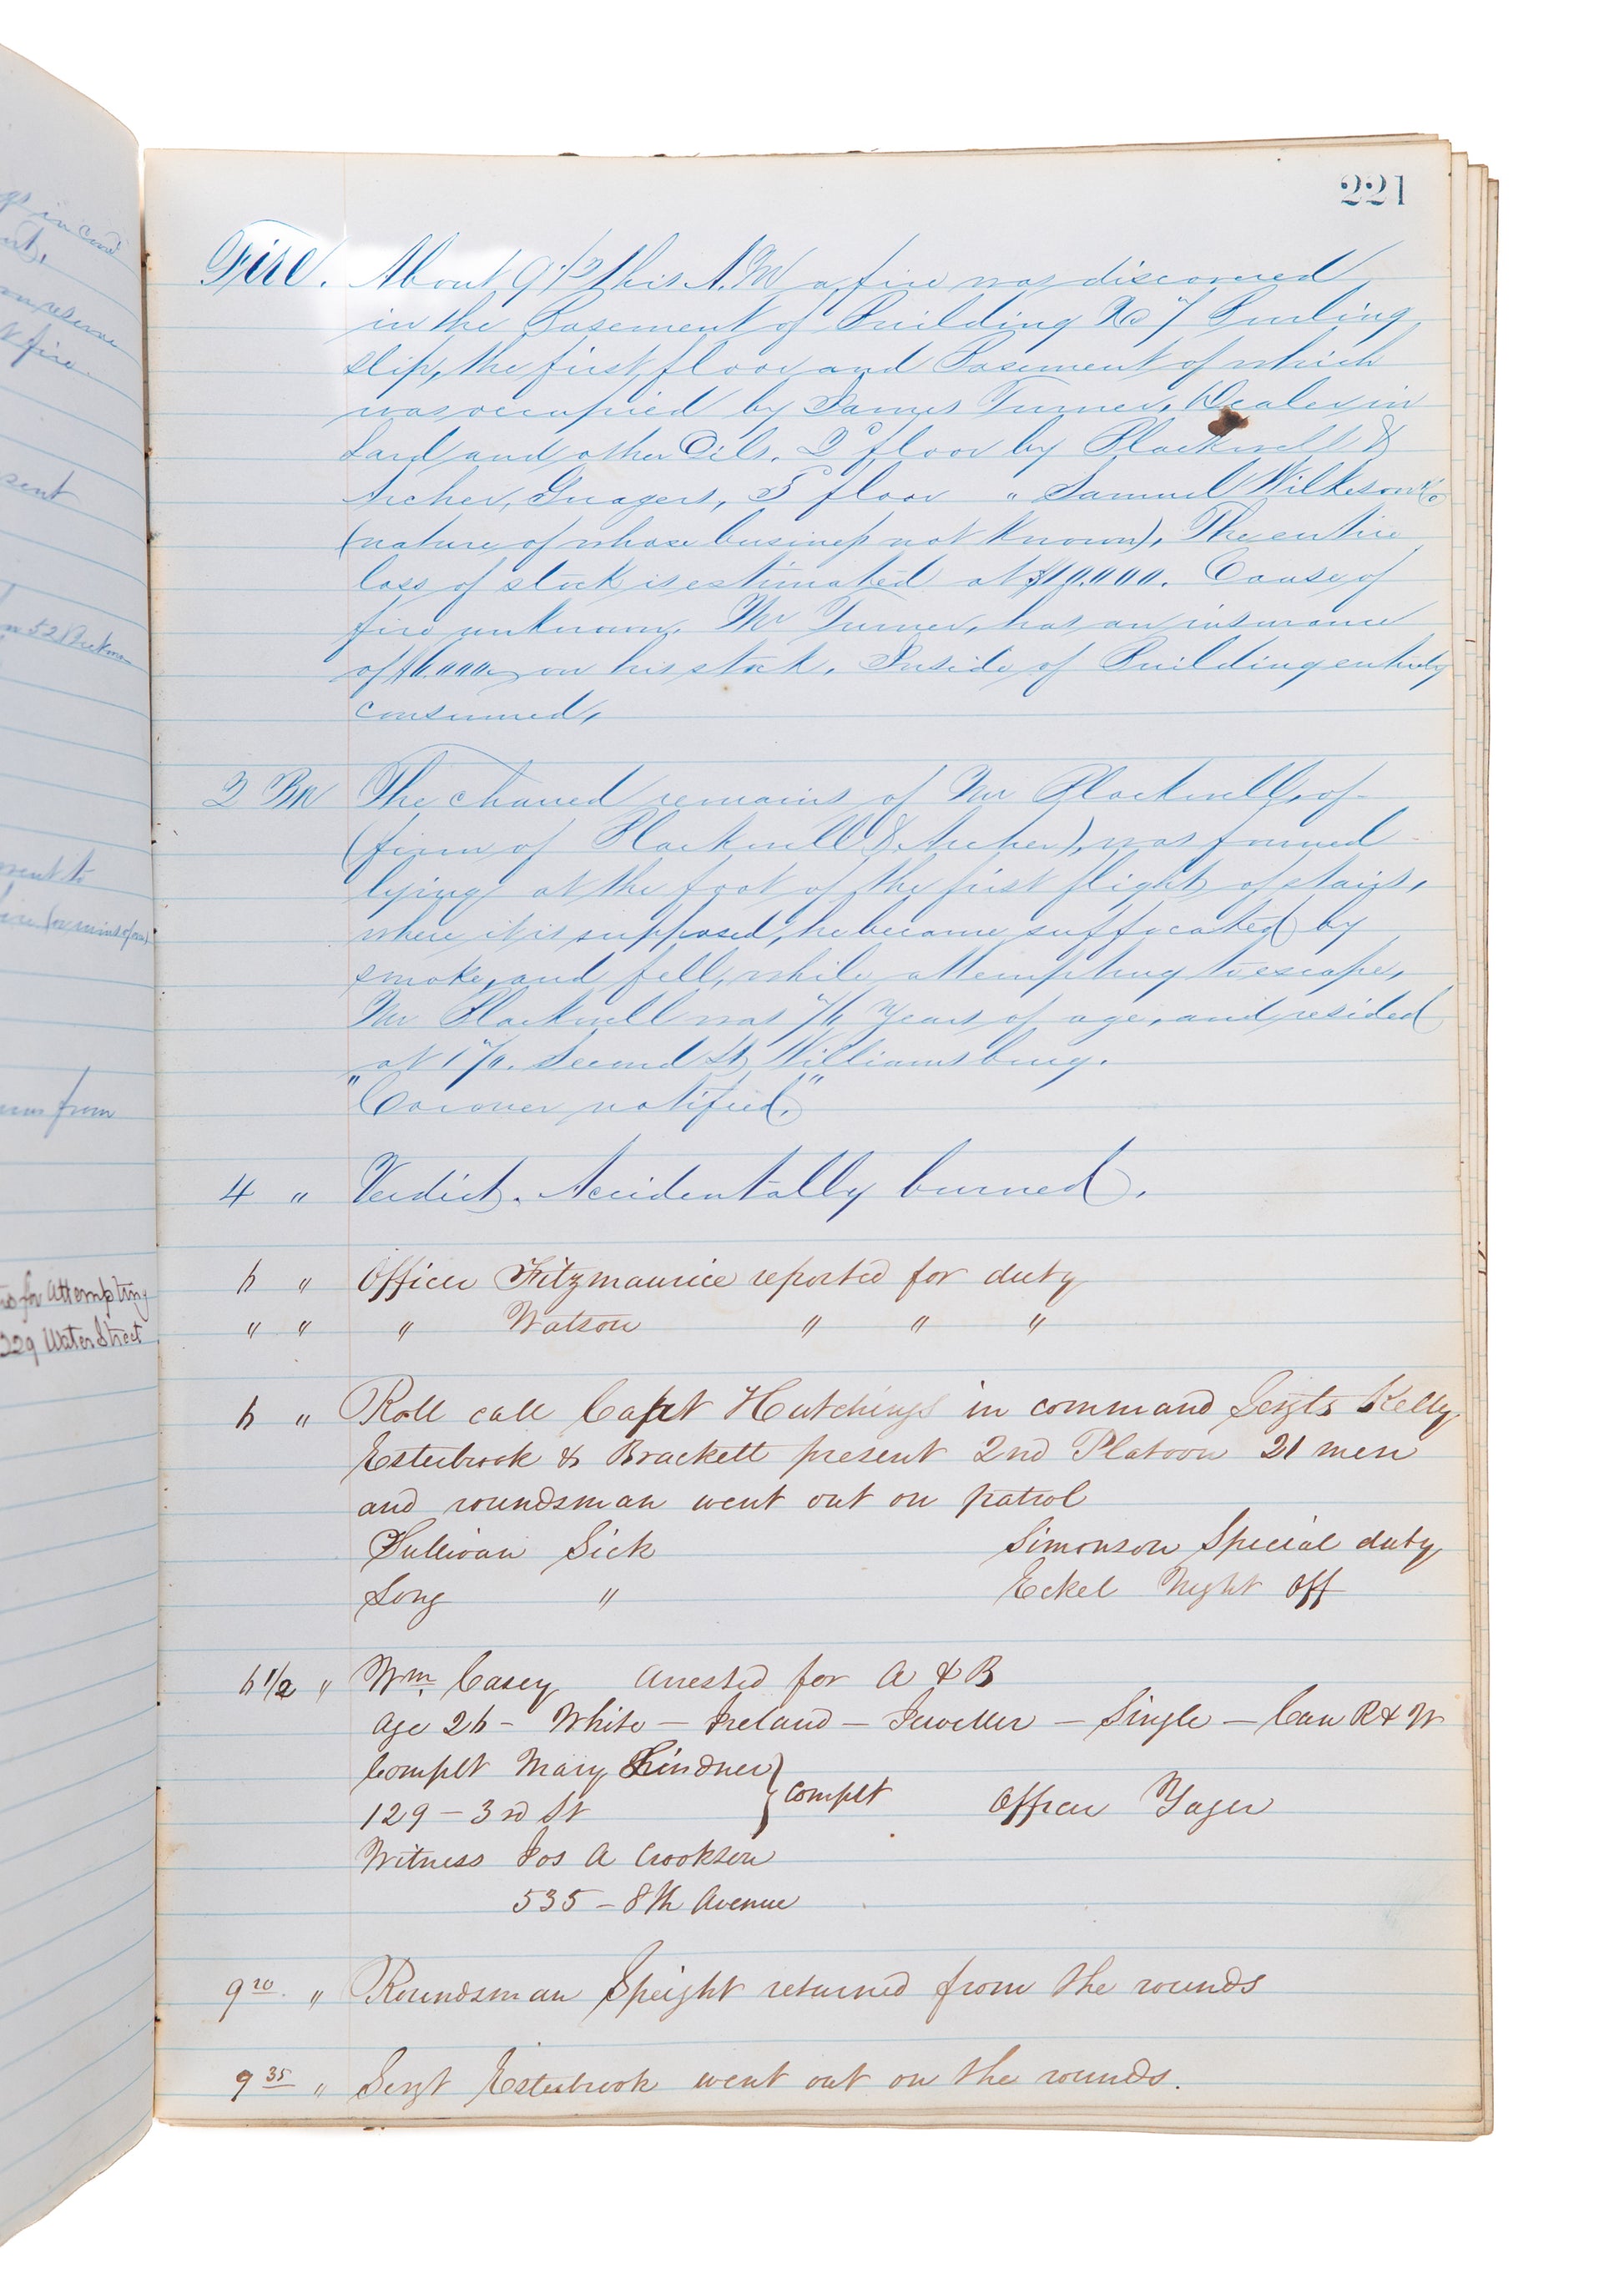 221
Fire. About 9 1/2 this A.M a fire was discovered
in the Basement of Building No 7 Burling
slip, the first floor and Basement of which
was occupied by James Turner, Dealer in
Lard and other Oils. 2d floor by Blackwell &
Archer, Guagers, floor " Samuel Wilkeson & Co
(nature of whose business not known), The entire
loss of stock is estimated at $10.000. Cause of
fire unknown. Mr Turner, has an insurance
of on his stock. Inside of Building entirely
consumed,
2 The charred remains of Mr Blackwell, of
(firm of Blackwell & Archer), was found
lying at the foot of the first flight of stairs,
where it is supposed, he became suffocated by
smoke, and fell, while attempting to escape,
Mr Blackwell was years of age, and resided
at Second St Williamsburg.
"Coroner notified,"
4 " Verdict. Accidentally burned.
6 " Officer Fitzmaurice reported for duty
" " " Watson " " "
6 " Roll call Capt Hutchings in command Sergts Kelly
Esterbrook & Brackett present 2nd Platoon 21 men
and roundsman went out on patrol
Sullivan Sick Simonson Special duty
Long " Eckel Night off
6 1/2 " Wm Casey Arrested for A & B
Age 26 - White - Ireland - Jeweller - Single - Can R & W
Complt Mary Lindner } Complt Officer Yager
129 - 3rd St
Witness Jos A Crookson
535 - 8th Avenue
9 20 " Roundsman Speight returned from the rounds
9 35 " Sergt Esterbrook went out on the rounds.
sent
from
for Attempting
229 Water Street